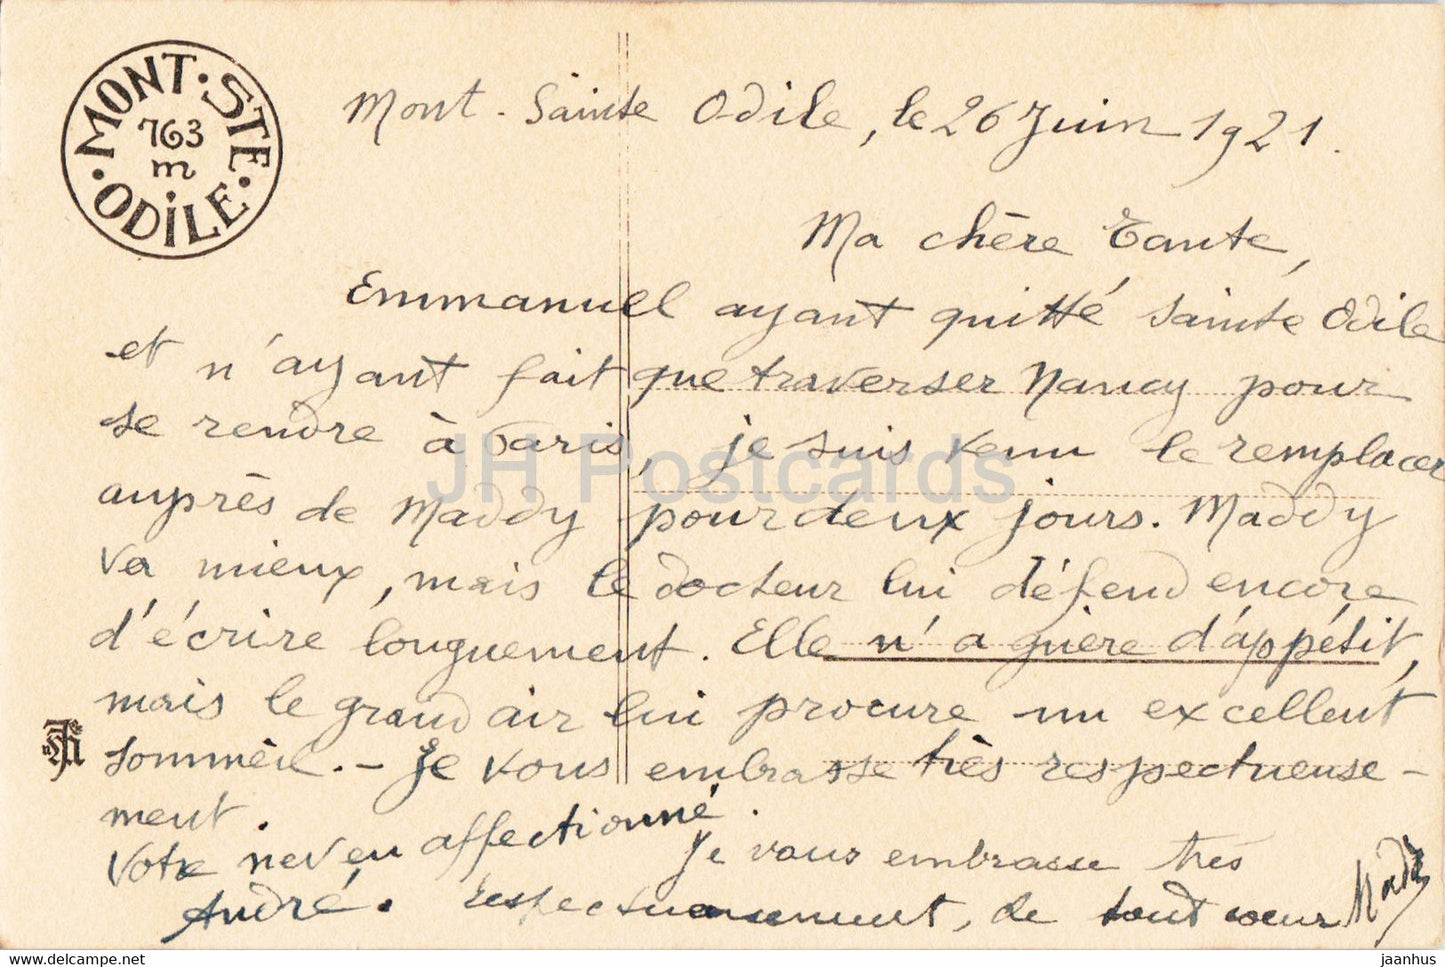 MONT · STE · ODILE ·
763
m
Mont-Sainte Odile, le 26 Juin 1921.
Ma chère Tante,
Emmanuel ayant quitté Sainte Odile
et n'ayant fait que traverser Nancy pour
se rendre à Paris, je suis venu le remplacer
auprès de Maddy pour deux jours. Maddy
va mieux, mais le docteur lui défend encore
d'écrire longuement. Elle n'a guère d'appétit,
mais le grand air lui procure un excellent
sommeil. - Je vous embrasse très respectueuse-
ment.
Votre neveu affectionné.
André.
Je vous embrasse très
respectueusement, de tout coeur
Maddy
JH Postcards
hipostcard.com
jaanhus